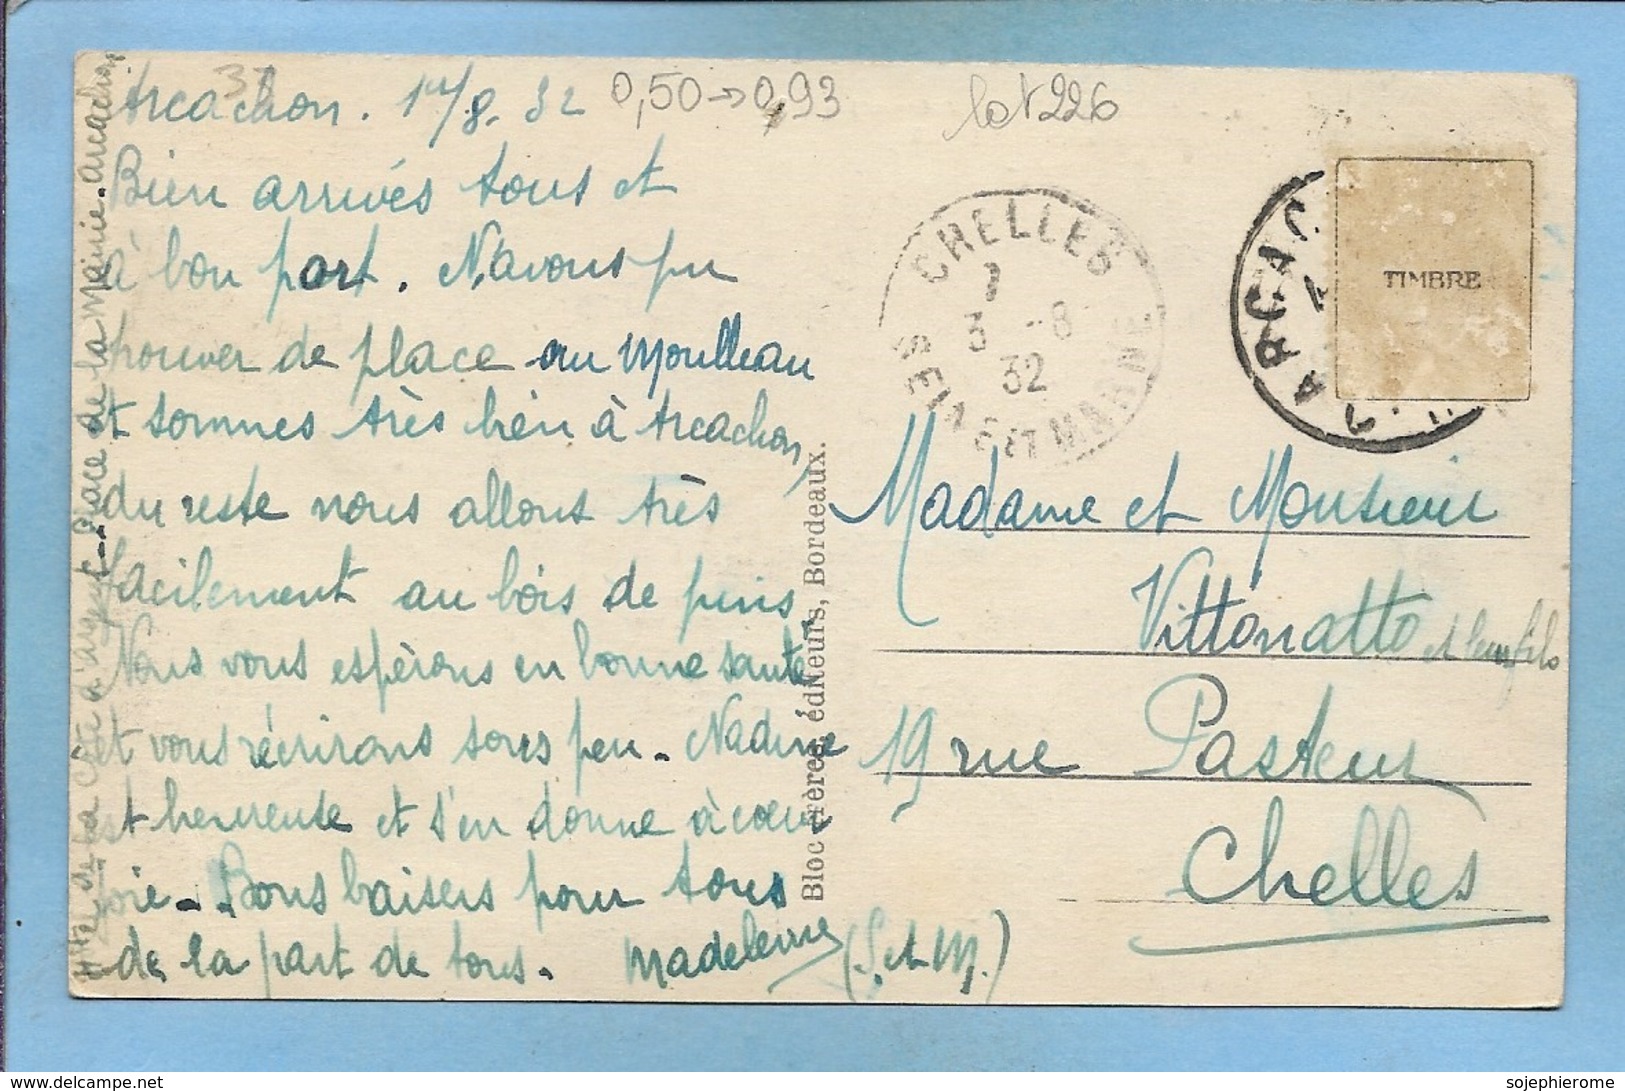 Arcachon. 1er/8. 32
37
0,50→0,93
lot 226
Bien arrivés tous et
à bon port. N'avons pu
trouver de place au Moulleau
et sommes très bien à Arcachon,
du reste nous allons très
facilement au bois de pins,
Nous vous espérons en bonne santé
et vous récrirons sous peu. Nadine
est heureuse et s'en donne à cœur
joie. Bons baisers pour tous
de la part de tous. Madeleine
Htel de la Côte d'argent - Place de la Mairie. Arcachon
Bloc frères, éditeurs, Bordeaux.
CHELLES
1
3 -8
32
SEINE ET MARNE
ARCAC
TIMBRE
Madame et Monsieur
Vittonatto et leur fils
19 rue Pasteur
Chelles
(S. et M.)
www.delcampe.net
sojephierome